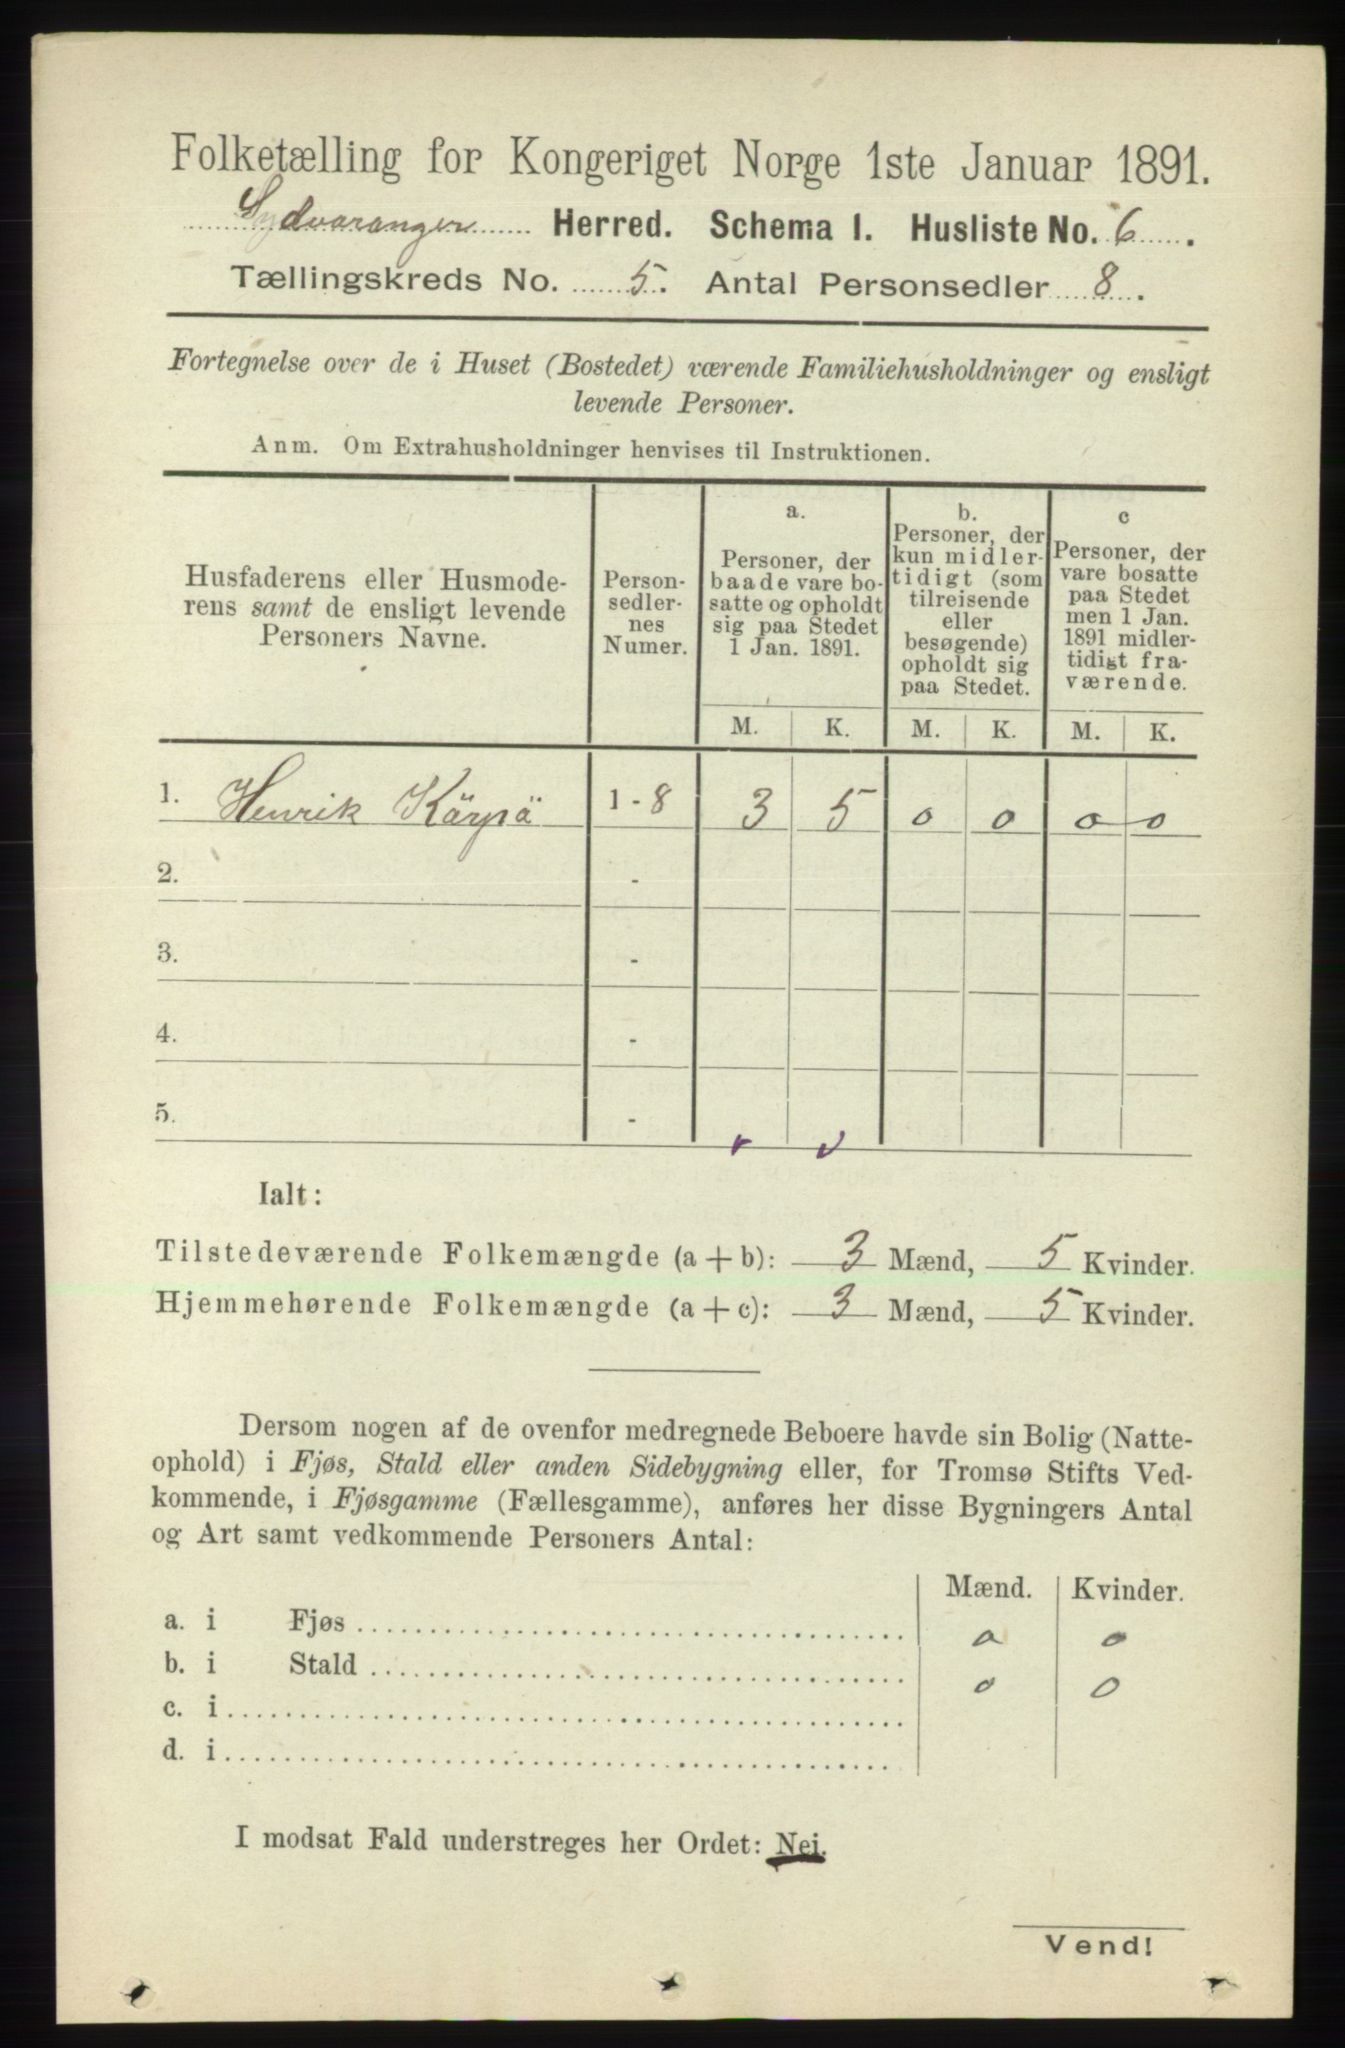 Folketælling for Kongeriget Norge 1ste Januar 1891.
Sydvaranger Herred. Schema I. Husliste No. 6.
Tællingskreds No. 5. Antal Personsedler 8.
Fortegnelse over de i Huset (Bostedet) værende Familiehusholdninger og ensligt
levende Personer.
Anm. Om Extrahusholdninger henvises til Instruktionen.
Husfaderens eller Husmode-
rens samt de ensligt levende
Personers Navne.
Person-
sedler-
nes
Numer.
a.
Personer, der
baade vare bo-
satte og opholdt
sig paa Stedet
1 Jan. 1891.
b.
Personer, der
kun midler-
tidigt (som
tilreisende
eller
besøgende)
opholdt sig
paa Stedet.
c
Personer, der
vare bosatte
paa Stedet
men 1 Jan.
1891 midler-
tidigt fra-
værende.
M. K. M. K. M. K.
1. Henrik Kärpä 1-8 3 5 0 0 0 0
2. -
3. -
4. -
5. -
Ialt:
Tilstedeværende Folkemængde (a+b): 3 Mænd, 5 Kvinder.
Hjemmehørende Folkemængde (a+c): 3 Mænd, 5 Kvinder.
Dersom nogen af de ovenfor medregnede Beboere havde sin Bolig (Natte-
ophold) i Fjøs, Stald eller anden Sidebygning eller, for Tromsø Stifts Ved-
kommende, i Fjøsgamme (Fællesgamme), anføres her disse Bygningers Antal
og Art samt vedkommende Personers Antal:
Mænd. Kvinder.
a. i Fjøs 0 0
b. i Stald 0 0
c. i
d. i
I modsat Fald understreges her Ordet: Nei.
Vend!